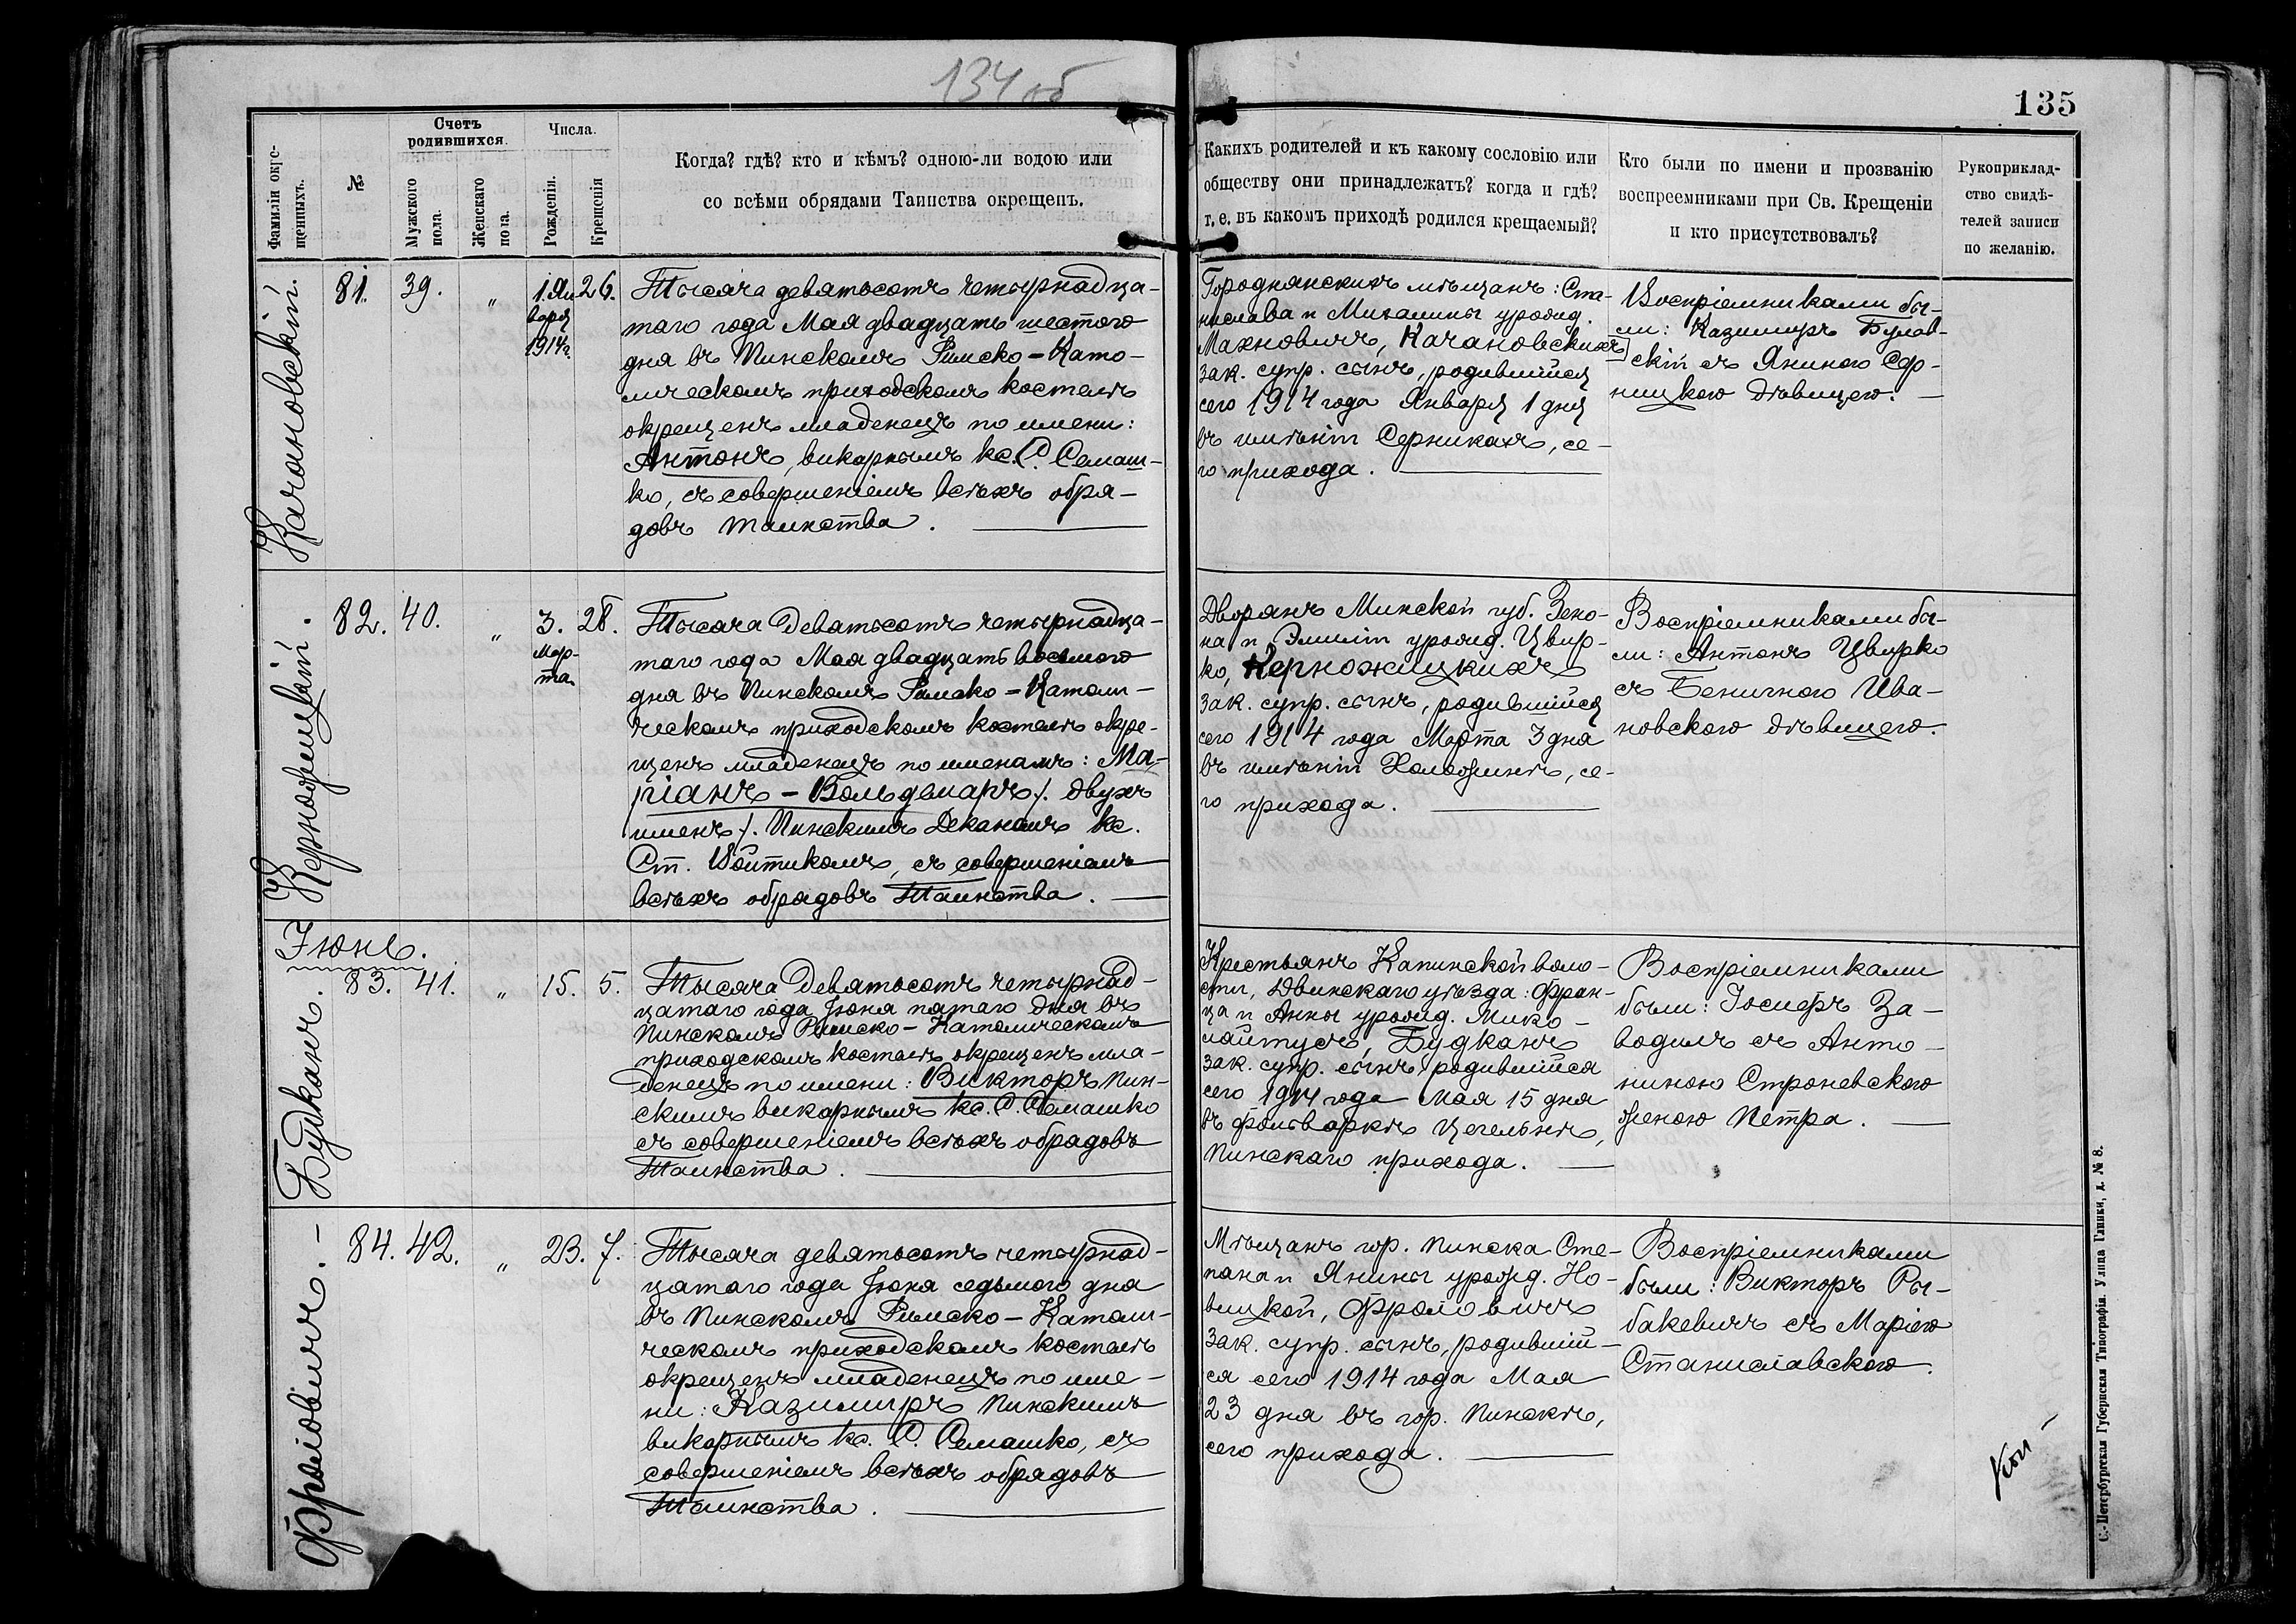 134 об
135
Фамиліи окре-
щенныхъ.
№
Счетъ
родившихся.
Мужского
пола.
Женскаго
пола.
Числа.
Рожденія.
Крещенія
Когда? гдѣ? кто и кѣмъ? одною-ли водою или
со всѣми обрядами Таинства окрещенъ.
Какихъ родителей и къ какому сословію или
обществу они принадлежатъ? когда и гдѣ?
т. е. въ какомъ приходѣ родился крещаемый?
Кто были по имени и прозванію
воспреемниками при Св. Крещеніи
и кто присутствовалъ?
Рукоприклад-
ство свидѣ-
телей записи
по желанію.
Качановскій.
81.
39.
„
1. Ян
варя
1914 г.
26.
Тысяча девятьсотъ четырнадца-
таго года Мая двадцать шестого
дня въ Пинскомъ Римско-Като-
лическомъ приходскомъ костелѣ
окрещенъ младенецъ по имени:
Антонъ, викарнымъ кс. С. Семаш-
ко, съ совершеніемъ всѣхъ обря-
довъ таинства.
Городнянскихъ мѣщанъ: Ста-
нислава и Михалины урожд.
Махновичъ, Качановскихъ
зак. супр. сынъ, родившійся
сего 1914 года Января 1 дня
въ имѣніи Серникахъ, се-
го прихода.
Воспріемниками бы-
ли: Казимиръ Булав-
скій съ Яниною Сер-
ницкою дѣвицею.
Керножицкій.
82.
40.
„
3.
Мар-
та
28.
Тысяча девятьсотъ четырнадца-
таго года Мая двадцать восьмого
дня въ Пинскомъ Римско-Католи-
ческомъ приходскомъ костелѣ окре-
щенъ младенецъ по именамъ: Ма-
ріанъ-Вольдемаръ /. двухъ
именъ /. Пинскимъ Деканомъ кс.
Ст. Войтикомъ, съ совершеніемъ
всѣхъ обрядовъ Таинства.
Дворянъ Минской губ. Зено-
на и Эмиліи урожд. Цвир-
ко, Керножицкихъ
зак. супр. сынъ, родившійся
сего 1914 года Марта 3 дня
въ имѣніи Холожинѣ, се-
го прихода.
Воспріемниками бы-
ли: Антонъ Цвирко
съ Бенигною Ива-
новскою дѣвицею.
Іюнь.
Будканъ.
83.
41.
„
15.
5.
Тысяча девятьсотъ четырнад-
цатаго года Іюня пятаго дня въ
Пинскомъ Римско-Католическомъ
приходскомъ костелѣ окрещенъ мла-
денецъ по имени: Викторъ Пин-
скимъ викарнымъ кс. С. Семашко
съ совершеніемъ всѣхъ обрядовъ
Таинства.
Крестьянъ Капинской воло-
сти, Двинскаго уѣзда: Фран-
ца и Анны урожд. Мико-
лайтусъ, Будканъ
зак. супр. сынъ, родившійся
сего 1914 года Мая 15 дня
въ фольваркѣ Цегельнѣ,
Пинскаго прихода.
Воспріемниками
были: Іосифъ За-
водилъ съ Анто-
ниною Строневскою
женою Петра.
Фроловичъ.
84.
42.
„
23.
7.
Тысяча девятьсотъ четырнад-
цатаго года Іюня седьмого дня
въ Пинскомъ Римско-Католи-
ческомъ приходскомъ костелѣ
окрещенъ младенецъ по име-
ни: Казимиръ Пинскимъ
викарнымъ кс. С. Семашко, съ
совершеніемъ всѣхъ обрядовъ
Таинства.
Мѣщанъ гор. Пинска Сте-
пана и Янины урожд. Но-
вицкой, Фроловичъ
зак. супр. сынъ, родившій-
ся сего 1914 года Мая
23 дня въ гор. Пинскѣ,
сего прихода.
Воспріемниками
были: Викторъ Ры-
бакевичъ съ Маріею
Станиславскою.
С.-Петербургская Губернская Типографія. Улица Глинки, д. № 8.